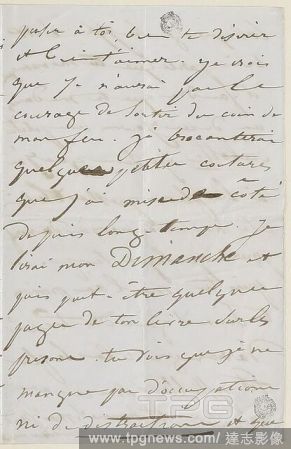 penser à toi, bien te désirer
et bien t'aimer. je crois
que je n'aurai pas le
courage de sortir du coin de
mon feu. je brocanterai
quelques petites
que j'ai mises de côté
depuis longtemps. Je
lirai mon Dimanche et
puis peut-être quelques
pages de ton livre sur les
prisons. tu vois que je ne
manque pas d'occupations
ni de distractions et que
TPG
www.tpgnews.com / 達志影像